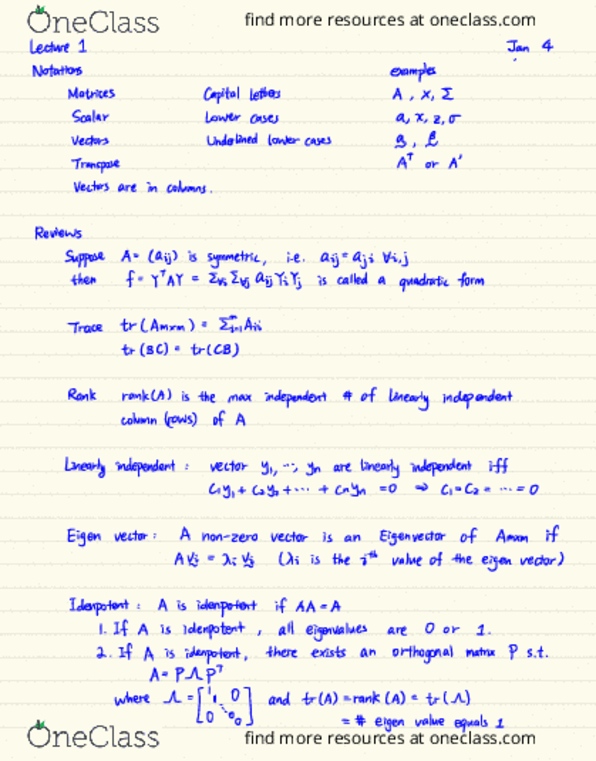 OneClass find more resources at oneclass.com
Lecture 1 Jan 4
Notations examples
Matrices Capital letters A , X, Σ
Scalar Lower cases a, x, z, σ
Vectors Underlined lower cases a , β
Transpose Aᵀ or A'
Vectors are in columns.
Reviews
Suppose A = (aij) is symmetric, i.e. aij = aji ∀i,j
then f = YᵀAY = Σ∀i Σ∀j aij Yi Yj is called a quadratic form
Trace tr(Amxm) = Σᵐi=1 Aii
tr(BC) = tr(CB)
Rank rank(A) is the max independent # of linearly independent
column (rows) of A
Linearly independent : vector y1, ..., yn are linearly independent iff
C1y1 + C2y2 + ... + Cnyn = 0 ⇒ C1 = C2 = ... = 0
Eigen vector : A non-zero vector is an Eigenvector of Amxm if
A Vj = λi Vj (λi is the iᵗʰ value of the eigen vector)
Idempotent : A is idempotent if AA = A
1. If A is idempotent , all eigenvalues are 0 or 1.
2. If A is idempotent, there exists an orthogonal matrix P s.t.
A = PΛPᵀ
where Λ = [1 1 0 0 0 0] and tr(A) = rank(A) = tr(Λ)
= # eigen value equals 1
OneClass find more resources at oneclass.com